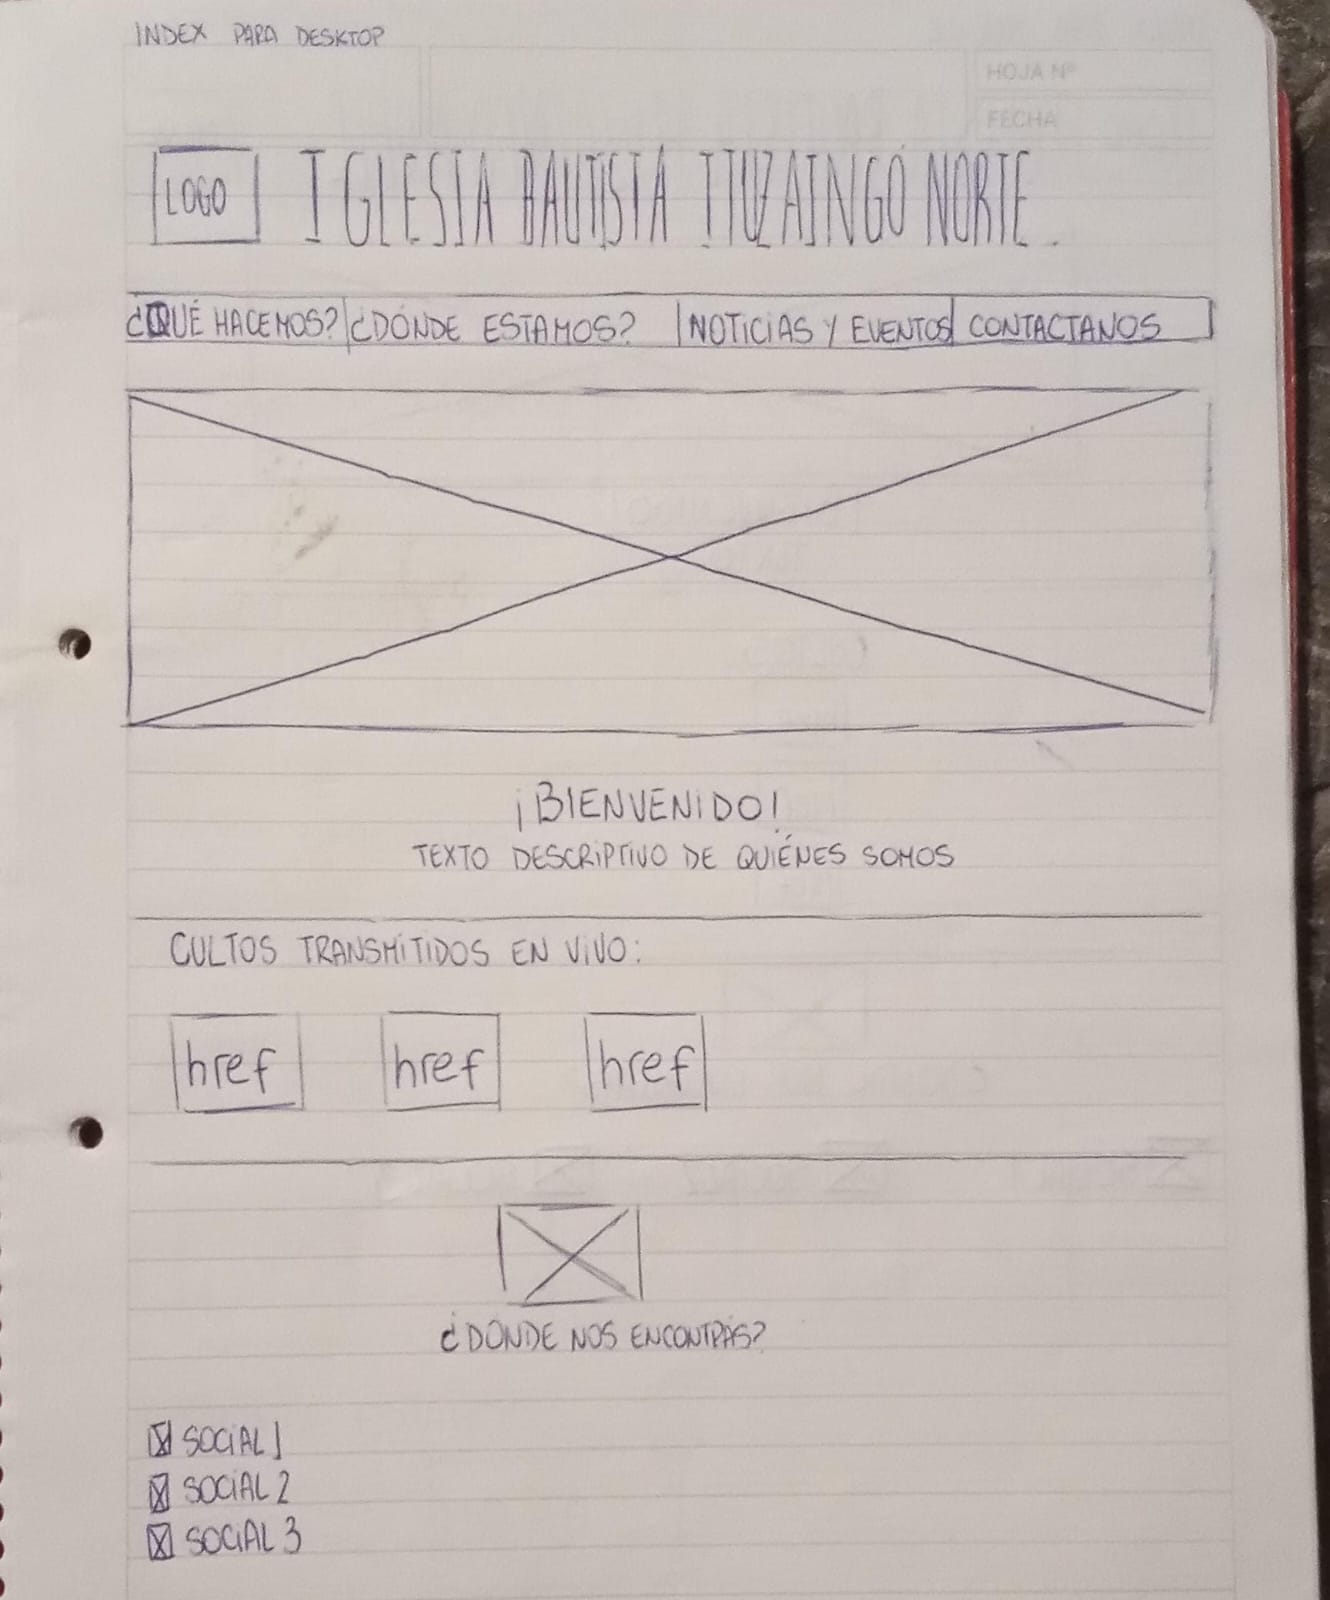 INDEX PARA DESKTOP
HOJA Nº
FECHA
LOGO IGLESIA BAUTISTA ITUZAINGÓ NORTE.
¿QUÉ HACEMOS? ¿DÓNDE ESTAMOS? NOTICIAS Y EVENTOS CONTACTANOS
¡BIENVENIDO!
TEXTO DESCRIPTIVO DE QUIÉNES SOMOS
CULTOS TRANSMITIDOS EN VIVO:
href href href
¿DÓNDE NOS ENCONTRÁS?
SOCIAL 1
SOCIAL 2
SOCIAL 3